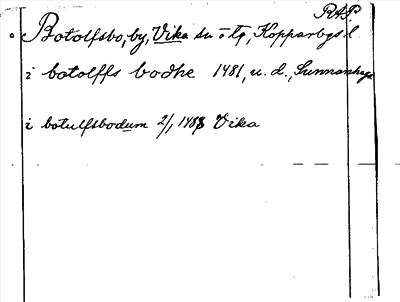 RAP.
Botolfsbo, by, Vika sn o tg, Kopparbgs l
i botolffs bodhe 1481, u. d., Sunnanhage
i botulfsbodum 2/1 1488 Vika